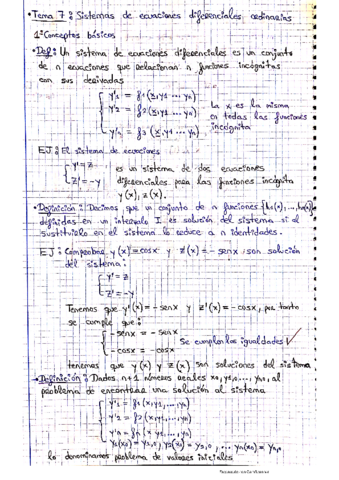 • Tema 7: Sistemas de ecuaciones diferenciales ordinarias
1º Conceptos básicos
• Def: Un sistema de ecuaciones diferenciales es un conjunto
de n ecuaciones que relacionan n funciones incógnitas
con sus derivadas
y'1 = f1(x,y1 ... yn)
y'2 = f2(x,y1 ... yn)
y'n = f3(x,y1 ... yn)
La x es la misma
en todas las funciones
incógnita
EJ: El sistema de ecuaciones
y' = z
z' = -y
es un sistema de dos ecuaciones
diferenciales para las funciones incógnita
y(x); z(x).
• Definición: Decimos que un conjunto de n funciones {h1(x), ..., hn(x)}
definidas en un intervalo I es solución del sistema si al
sustituirlo en el sistema lo reduce a n identidades.
EJ: Comprobar y(x) = cosx y z(x) = -senx son solución
del sistema:
y' = z
z' = -y
Tenemos que y'(x) = -senx y z'(x) = -cosx, por tanto
se cumple que:
-senx = -senx
-cosx = -cosx
Se cumplen las igualdades ✓
tenemos que y(x) y z(x) son soluciones del sistema
→ Definición: Dados n+1 números reales x0, y1,0, ..., yn,0, al
problema de encontrar una solución al sistema
y'1 = f1(x,y1, ..., yn)
y'2 = f2(x,y1, ..., yn)
y'n = fn(x,y1, ..., yn)
y1(x0) = y1,0, y2(x0) = y2,0, ... yn(x0) = yn,0
lo denominamos problema de valores iniciales